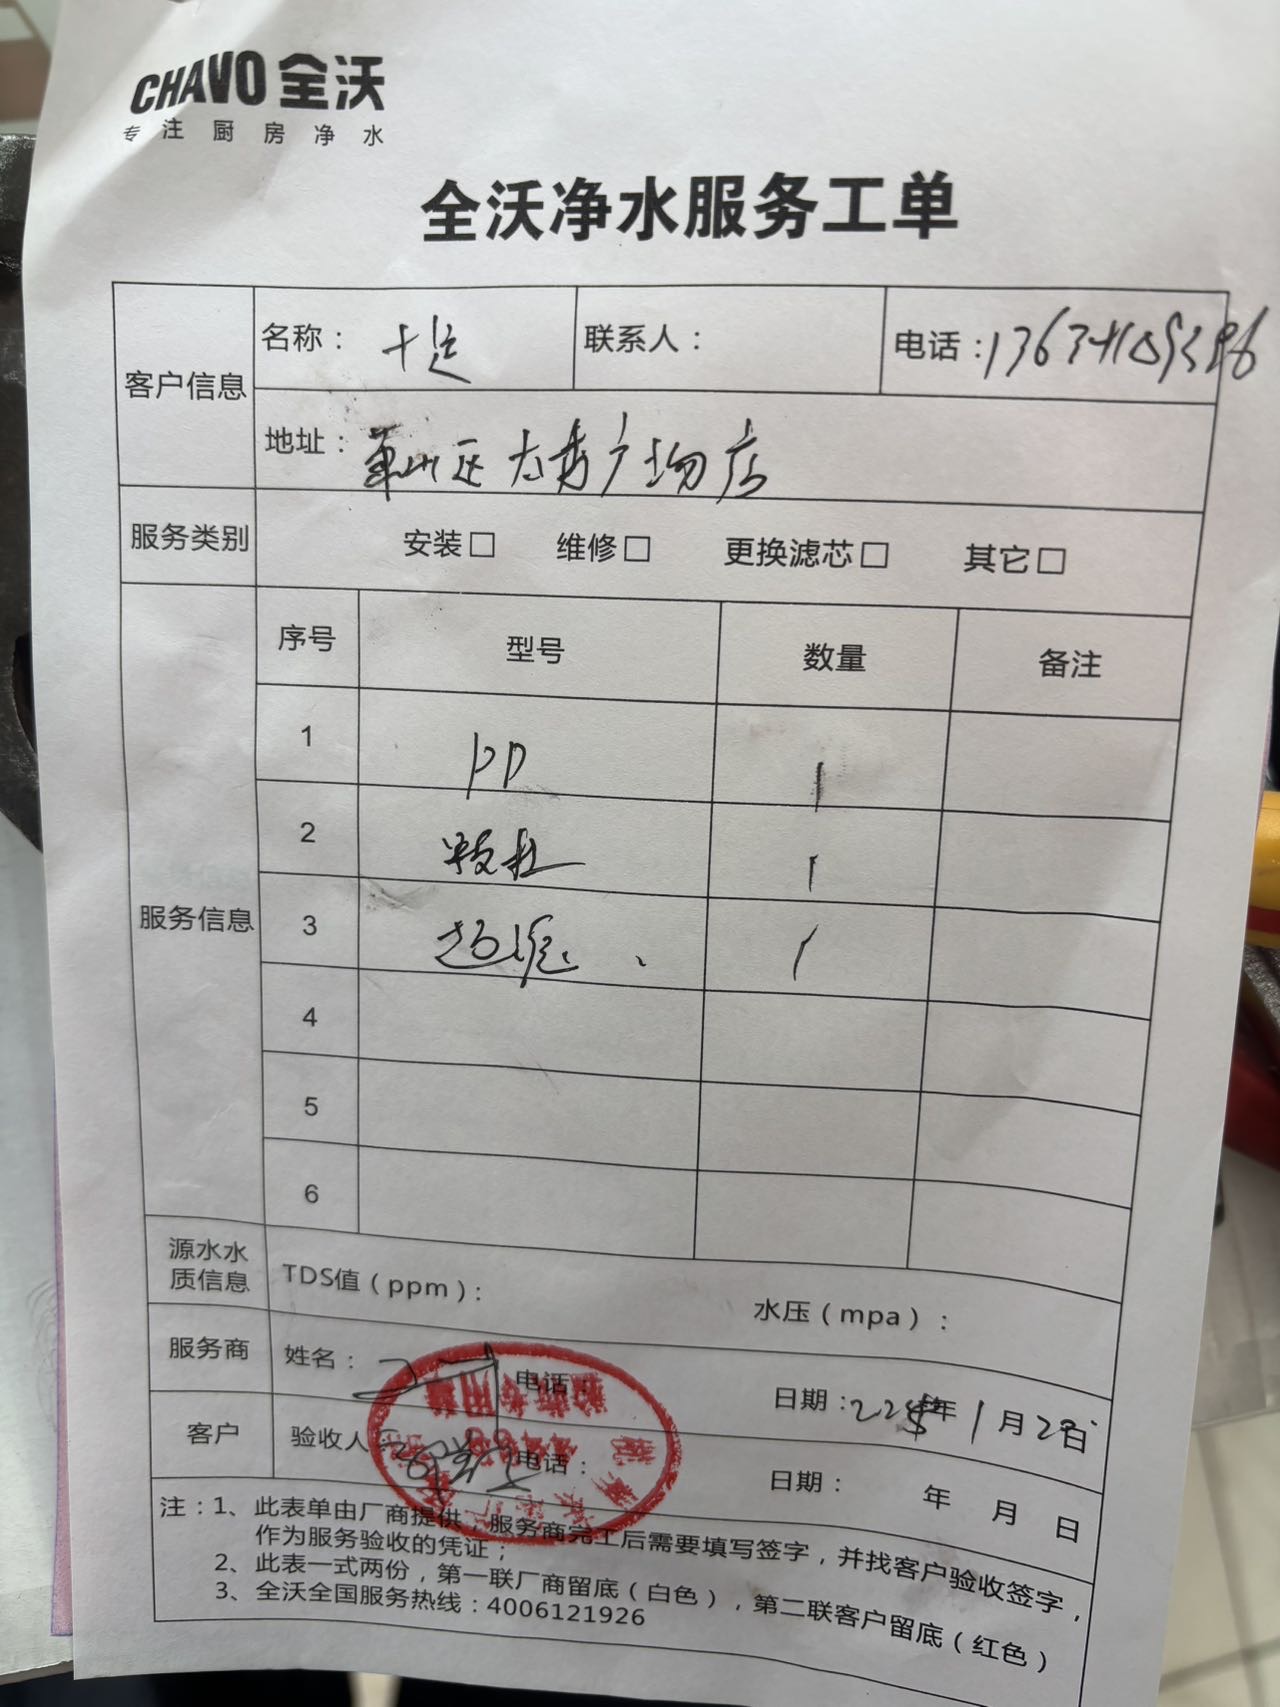 CHAVO 全沃
专注厨房净水
全沃净水服务工单
客户信息
名称：
联系人：
电话：
地址： 广场店
服务类别
安装□ 维修□ 更换滤芯□ 其它□
服务信息
序号 型号 数量 备注
1 PP 1
2 1
3 超滤 1
4
5
6
源水水质信息
TDS值（ppm）： 水压（mpa）：
服务商
姓名： 电话： 日期： 年1月 日
客户
验收人 电话： 日期： 年 月 日
注：1、此表单由厂商提供，服务商完工后需要填写签字，并找客户验收签字，
作为服务验收的凭证；
2、此表一式两份，第一联厂商留底（白色），第二联客户留底（红色）
3、全沃全国服务热线：4006121926